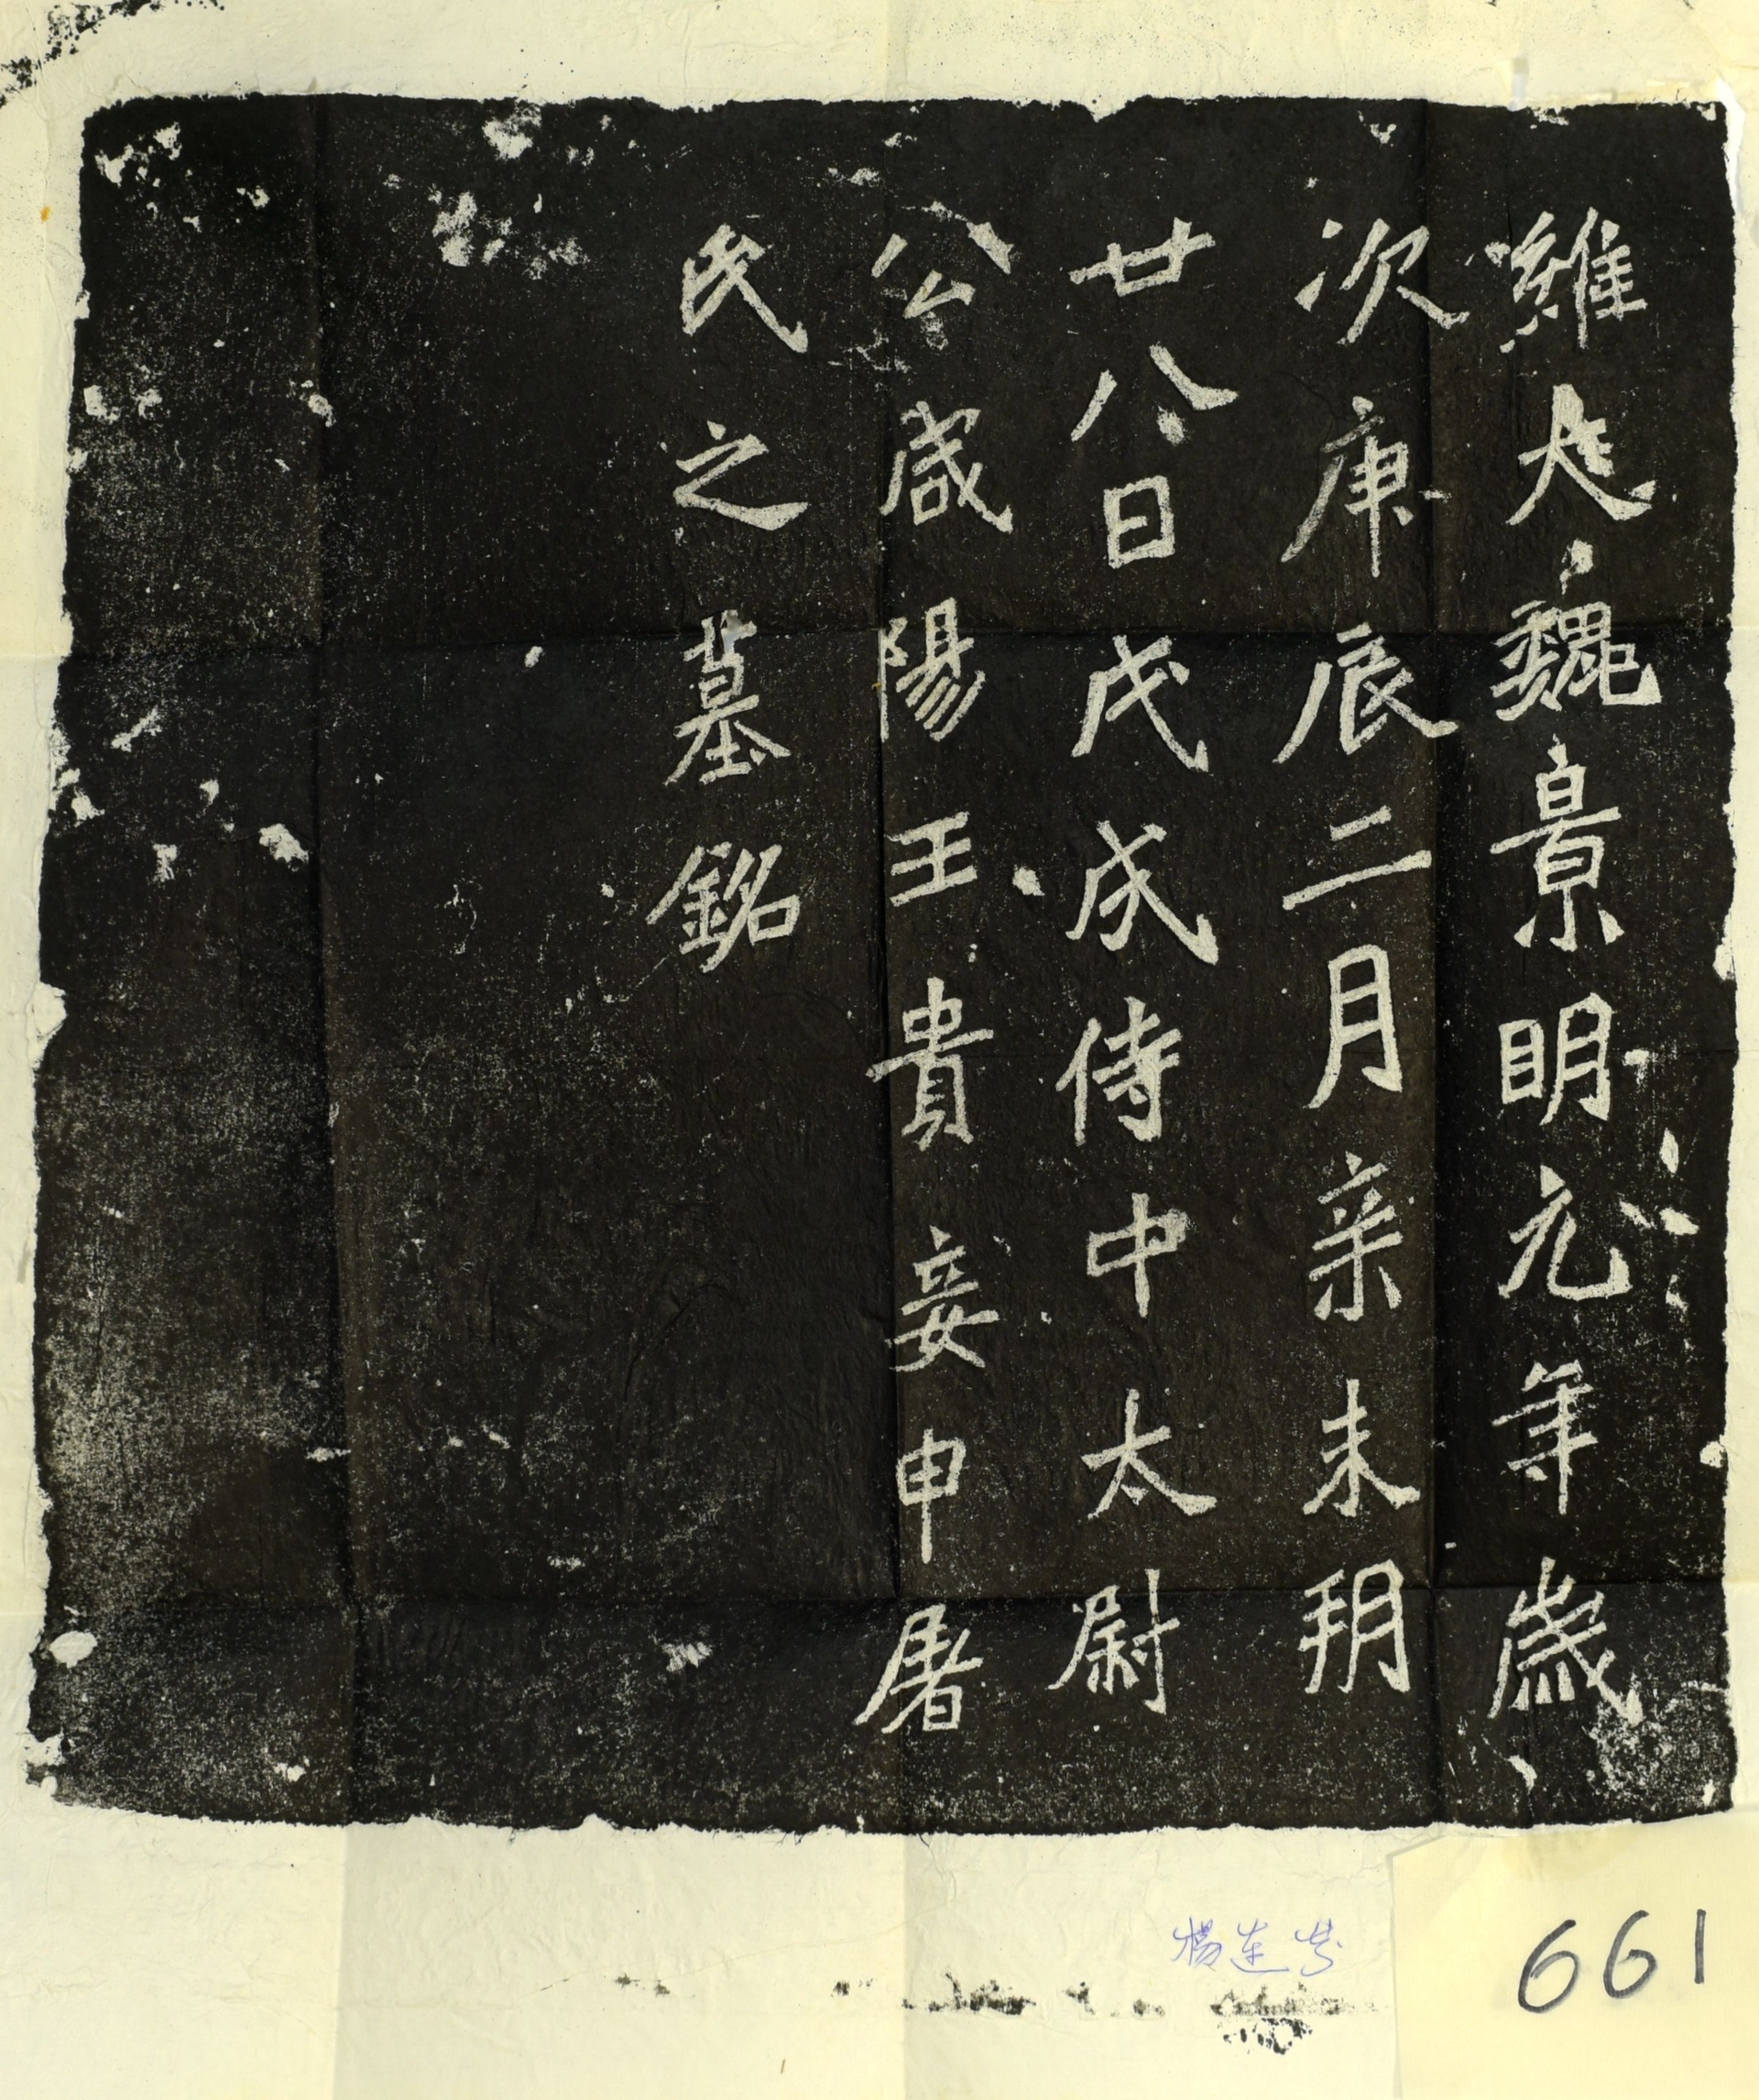 維大魏景明元年歲
次庚辰二月亲未朔
廿八日戊戌侍中太尉
公咸陽王貴妾申屠
氏之墓銘
661